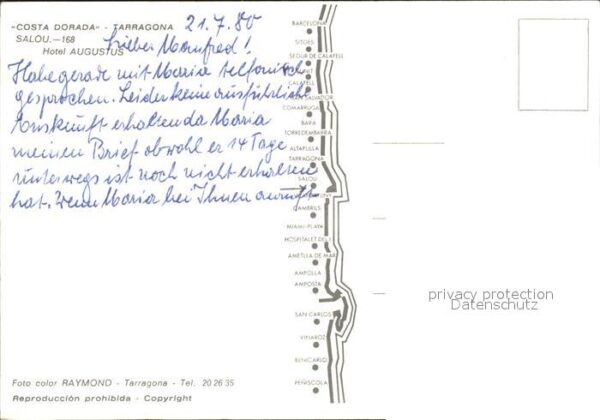 "COSTA DORADA" - TARRAGONA
SALOU.—168
Hotel AUGUSTUS
21.7.80
Lieber Manfred!
Habe gerade mit Maria telfonisch
gesprochen. Leider keine ausführliche
Auskunft erhalten da Maria
meinen Brief obwohl er 14 Tage
unterwegs ist noch nicht erhalten
hat. Wenn Maria bei Ihnen anruft
BARCELONA
SITGES
SEGUR DE CALAFELL
CALAFELL
SAN SALVADOR
COMARRUGA
BARA
TORREDEMBARRA
ALTAFULLA
TARRAGONA
SALOU
CAMBRILS
MIAMI-PLAYA
HOSPITALET DEL I.
AMETLLA DE MAR
AMPOLLA
AMPOSTA
SAN CARLOS
VINAROZ
BENICARLO
PEÑISCOLA
privacy protection
Datenschutz
Foto color RAYMOND - Tarragona - Tel. 20 26 35
Reproducción prohibida - Copyright